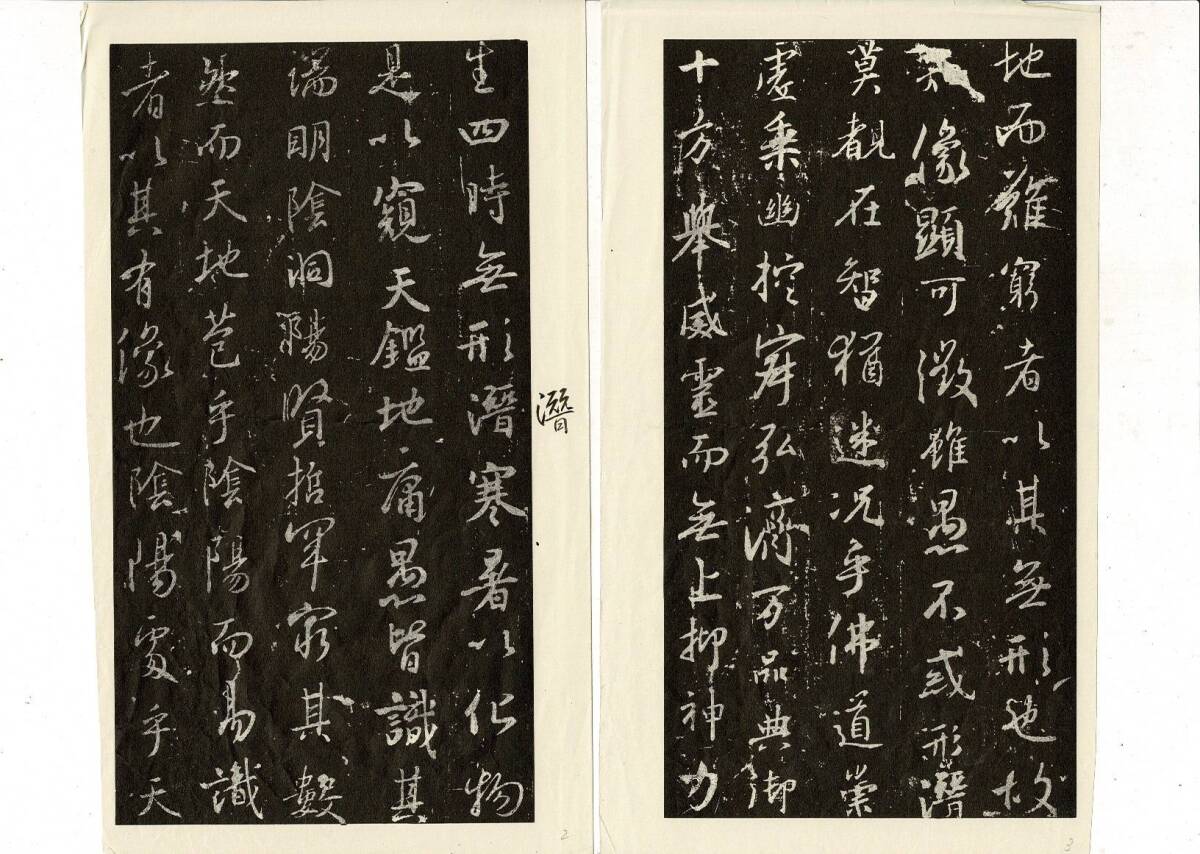 生四時無形潛寒暑以化物
是以窺天鑑地庸愚皆識其
端明陰洞陽賢哲罕窮其數
然而天地苞乎陰陽而易識
者以其有像也陰陽處乎天
2
潛
地而難窮者以其無形也故
像顯可徵雖愚不惑形潛
莫覩在智猶迷况乎佛道崇
虛乘幽控寂弘濟万品典御
十方舉威靈而無上抑神力
3